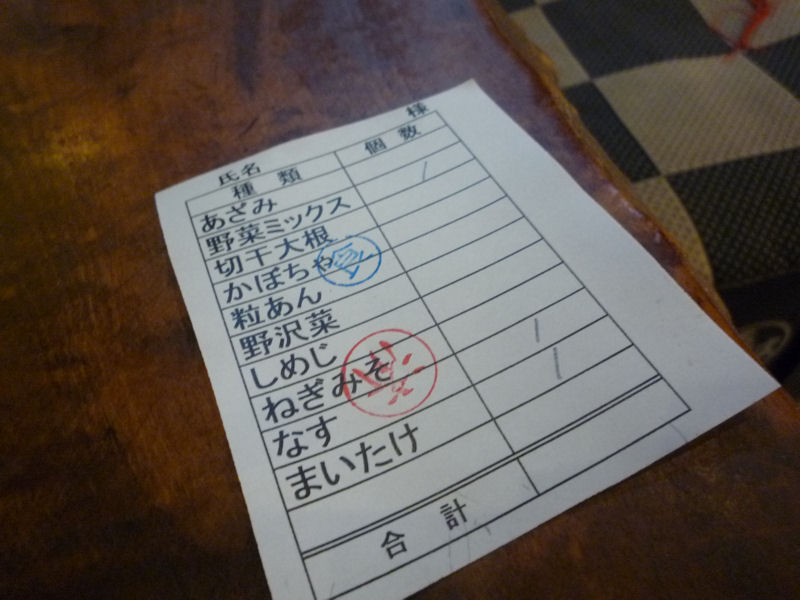 氏名 様
種類 個数
あざみ
野菜ミックス 1
切干大根
かぼちゃ
粒あん
野沢菜
しめじ
ねぎみそ
なす 1
まいたけ 1
合計